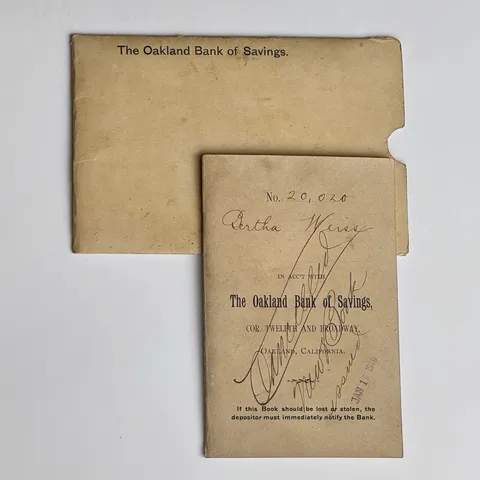 The Oakland Bank of Savings.
No. 20,020
Bertha Weiss
IN ACC'T WITH
The Oakland Bank of Savings,
COR. TWELFTH AND BROADWAY,
OAKLAND, CALIFORNIA.
Cancelled
New Book
issued
JAN 16
If this Book should be lost or stolen, the
depositor must immediately notify the Bank.